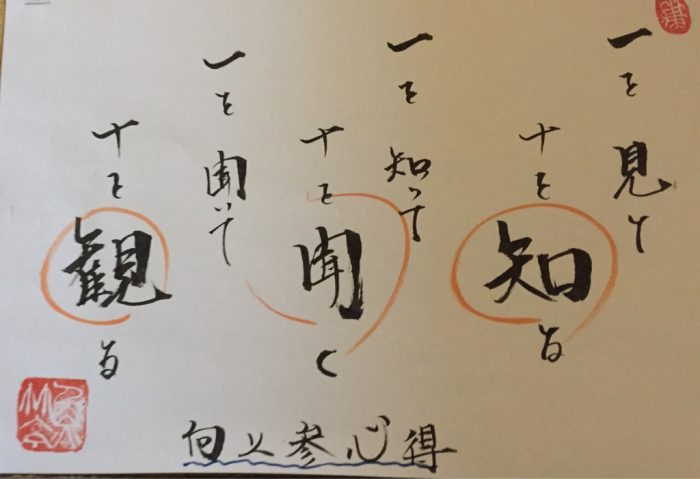 一を見て
十を知る
一を知って
十を聞く
一を聞いて
十を観る
向上参心得